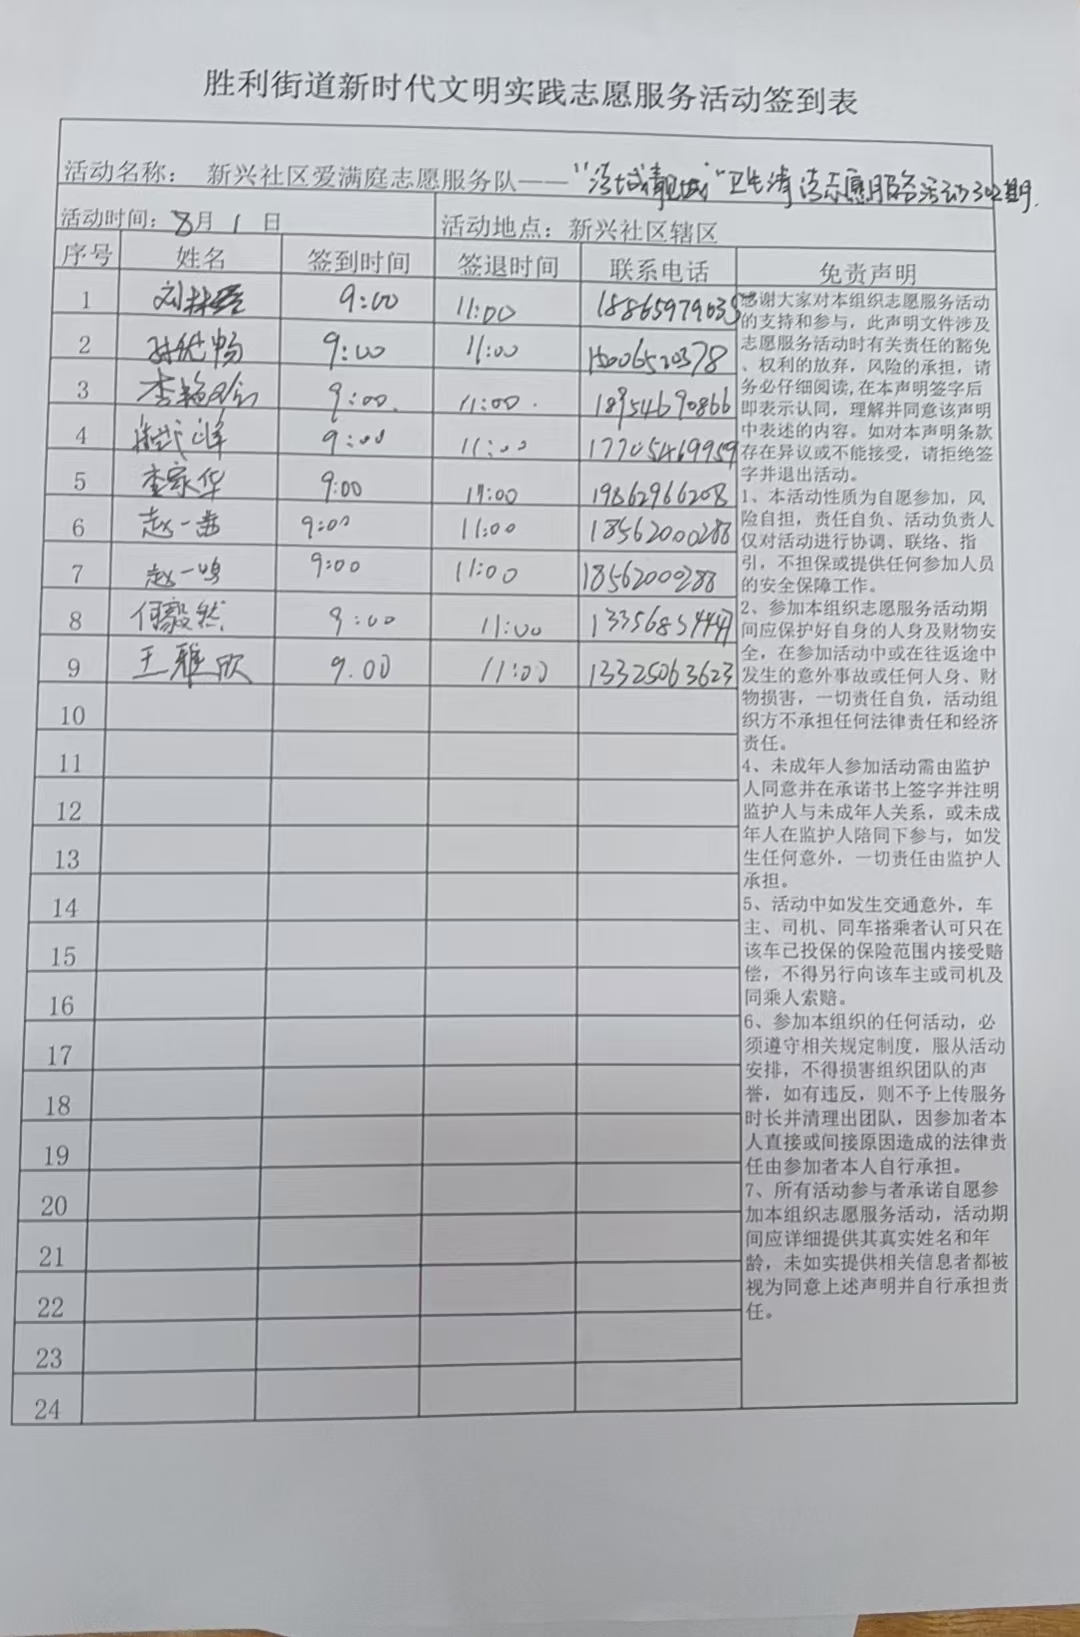 胜利街道新时代文明实践志愿服务活动签到表
活动名称： 新兴社区爱满庭志愿服务队——“ ”卫生清洁志愿服务活动302期.
活动时间：8月 1 日 活动地点：新兴社区辖区
序号 姓名 签到时间 签退时间 联系电话 免责声明
1 9:00 11:00 1886597903
2 9:00 11:00
3 9:00. 11:00. 18954690866
4 9:00 11:00 17705469959
5 李家华 9:00 11:00 19862966208
6 赵一茜 9:00 11:00 18562000288
7 赵一鸣 9:00 11:00 18562000288
8 何毅然 9:00 11:00
9 王雅欣 9.00 11:00 13325063623
10
11
12
13
14
15
16
17
18
19
20
21
22
23
24
感谢大家对本组织志愿服务活动
的支持和参与，此声明文件涉及
志愿服务活动时有关责任的豁免
、权利的放弃，风险的承担，请
务必仔细阅读,在本声明签字后
即表示认同，理解并同意该声明
中表述的内容。如对本声明条款
存在异议或不能接受，请拒绝签
字并退出活动。
1、本活动性质为自愿参加，风
险自担，责任自负、活动负责人
仅对活动进行协调、联络、指
引，不担保或提供任何参加人员
的安全保障工作。
2、参加本组织志愿服务活动期
间应保护好自身的人身及财物安
全，在参加活动中或在往返途中
发生的意外事故或任何人身、财
物损害，一切责任自负，活动组
织方不承担任何法律责任和经济
责任。
4、未成年人参加活动需由监护
人同意并在承诺书上签字并注明
监护人与未成年人关系，或未成
年人在监护人陪同下参与，如发
生任何意外，一切责任由监护人
承担。
5、活动中如发生交通意外，车
主、司机、同车搭乘者认可只在
该车已投保的保险范围内接受赔
偿，不得另行向该车主或司机及
同乘人索赔。
6、参加本组织的任何活动，必
须遵守相关规定制度，服从活动
安排，不得损害组织团队的声
誉，如有违反，则不予上传服务
时长并清理出团队，因参加者本
人直接或间接原因造成的法律责
任由参加者本人自行承担。
7、所有活动参与者承诺自愿参
加本组织志愿服务活动，活动期
间应详细提供其真实姓名和年
龄，未如实提供相关信息者都被
视为同意上述声明并自行承担责
任。